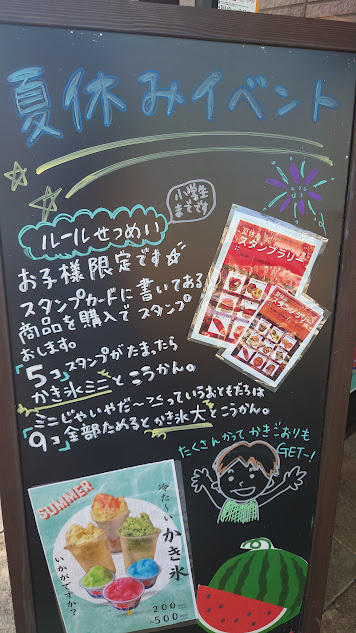 夏休みイベント
小学生
までです
ルールせつめい
お子様限定です☆
スタンプカードに書いてある
商品を購入でスタンプ
おします。
5コスタンプがたまったら
かき氷ミニとこうかん。
ミニじゃいやだ~っていうおともだちは
9コ全部ためるとかき氷大とこうかん。
たくさんかってかきごおりも
GET~!
スタンプラリー
スタンプラリー
SUMMER
冷た~い
かき氷
いかがですか?
200
500